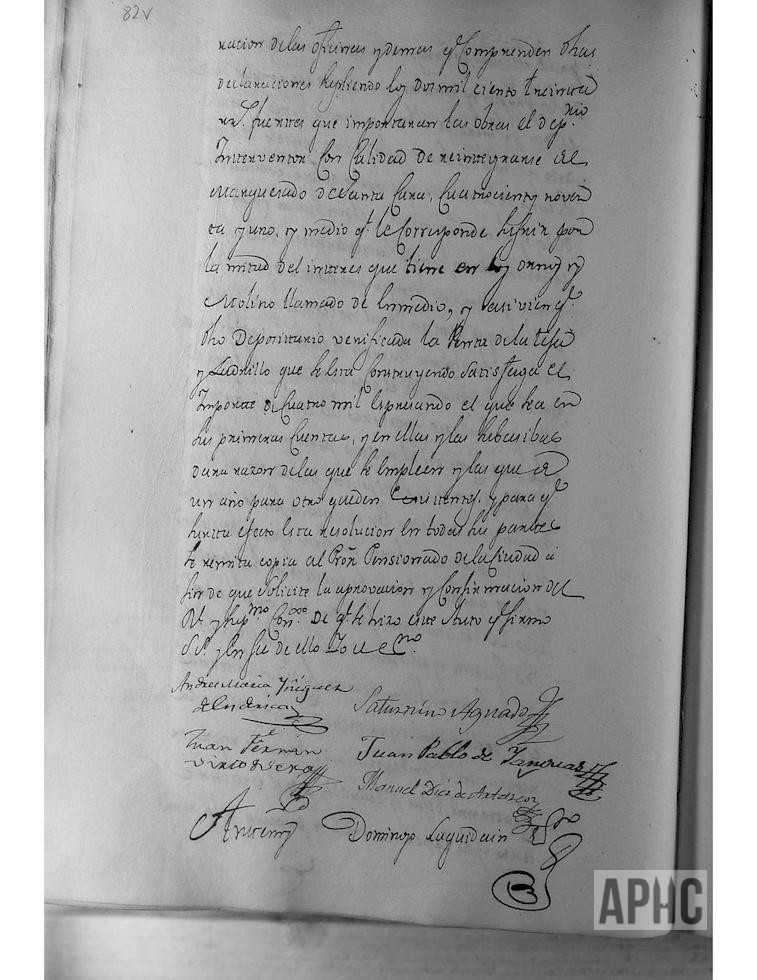 82v
racion de las oficinas y demas q̃ Comprenden dhas
declaraciones supliendo los Dosmil ciento treinta
rr.s fuertes que importaran las obras el dep.rio
Interventor Con Calidad de reintegrarse del
Marquesado de Santa Cara, Cuatrocientos noven
ta y uno, y medio q.e le Corresponde suplir por
la mitad del interes que tiene en los y
Molino llamado de Enmedio, y q.e
dho Depositario verificada la Venta de la teja
y Ladrillo que se esta Construyendo Satisfaga el
Importe de Cuatro mil Espresando el que sea en
sus primeras Cuentas, y en ellas y las subcesibas
dara razon de las que se Empleen y las que de
un año para otro queden Existentes. y para q.e
surta efecto esta resolucion en todas sus partes
se remita copia al Pror̃ Pensionado de la Ciudad a
fin de que Solicite la aprovacion y Confirmacion del
R.l y Sup.mo Con.o De q.e se hizo este Auto q̃ firmo
S.S. y en fee de ello Yo el e.no
Andres Maria Yñiguez
Saturnino Aguado
Juan Fermin
Juan Pablo de
Manuel Diez de
Antemi
Domingo Laquidain
APHC